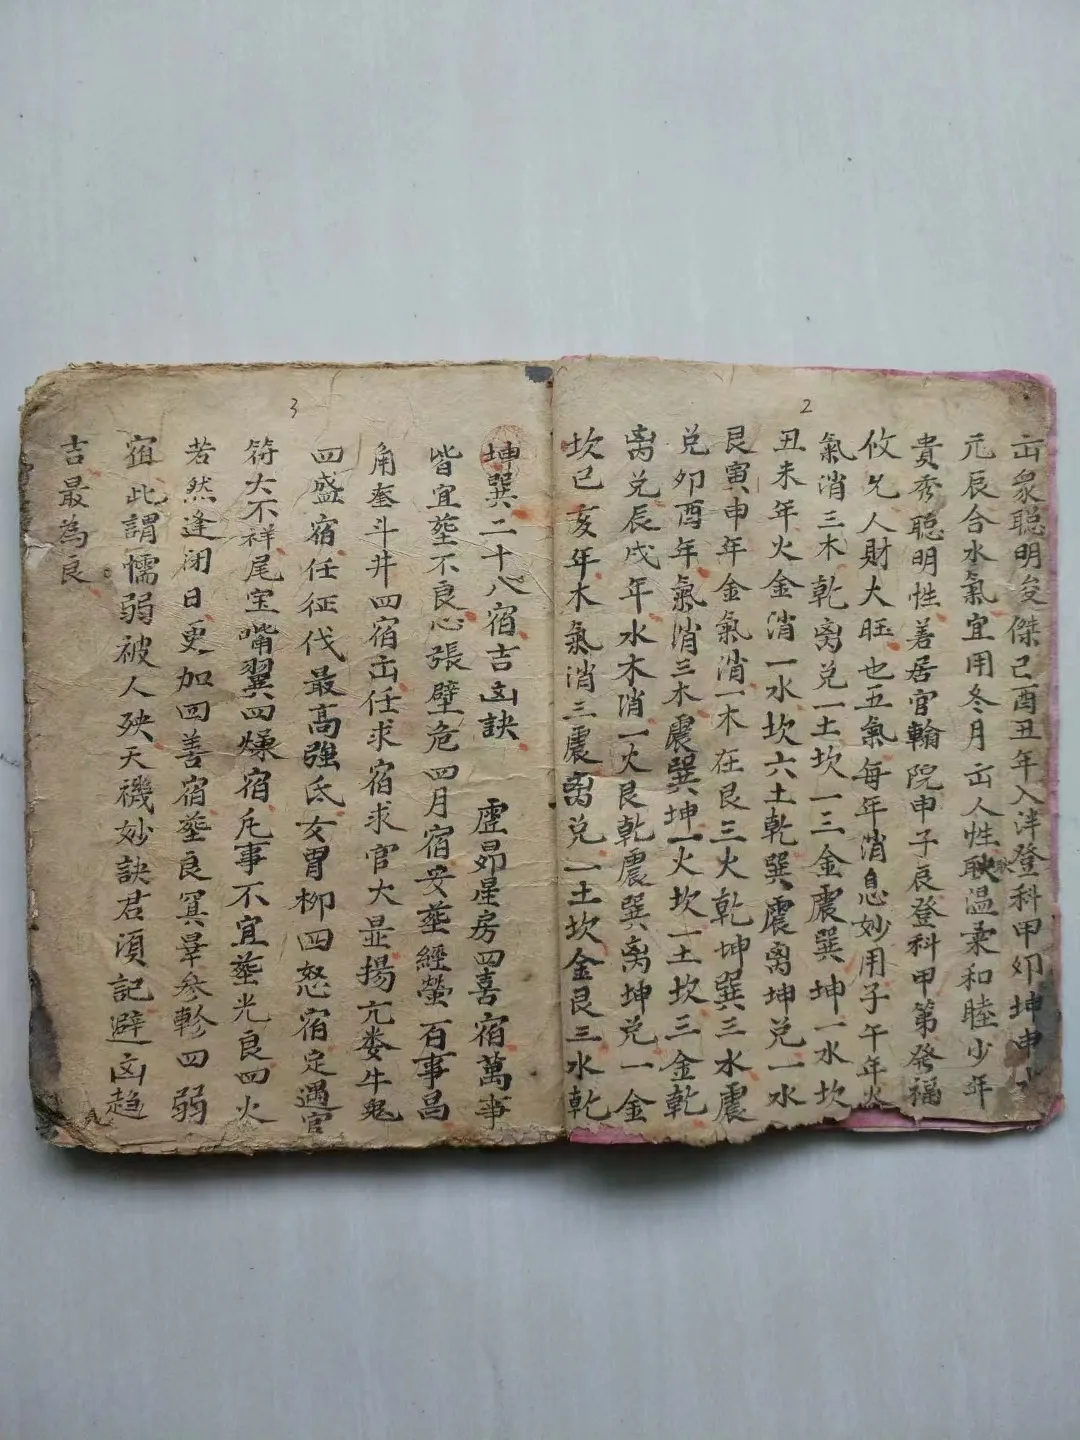 2
出衆聰明俊傑己酉丑年入泮登科甲卯坤申
元辰合水氣宜用冬月出人性耿温柔和睦少年
貴秀聰明性善居官翰院申子辰登科甲第發福
攸兄人財大旺也五氣每年消息妙用子午年火
氣消三木乾离兑一土坎一三金震巽坤一水坎
丑未年火金消一水坎六土乾巽震离坤兑一水
艮寅申年金氣消一木在艮三火乾坤巽三水震
兑卯酉年氣消三木震巽坤一火坎一土坎三金乾
离兑辰戌年水木消一火艮乾震巽离坤兑一金
坎巳亥年木氣消三震离兑一土坎金艮三水乾
3
坤巽二十八宿吉凶訣 虛昴星房四喜宿萬事
皆宜塟不良心張壁危四月宿安塟經營百事昌
角奎斗井四宿出任求宿求官大显揚亢娄牛鬼
四盛宿任征伐最高強氐女胃柳四怒宿定遇官
符大不祥尾室嘴翼四燥宿凡事不宜塟光良四火
若然逢闭日更加四善宿塟良箕畢參軫四弱
宿此謂懦弱被人殃天機妙訣君須記避凶趋
吉最為良